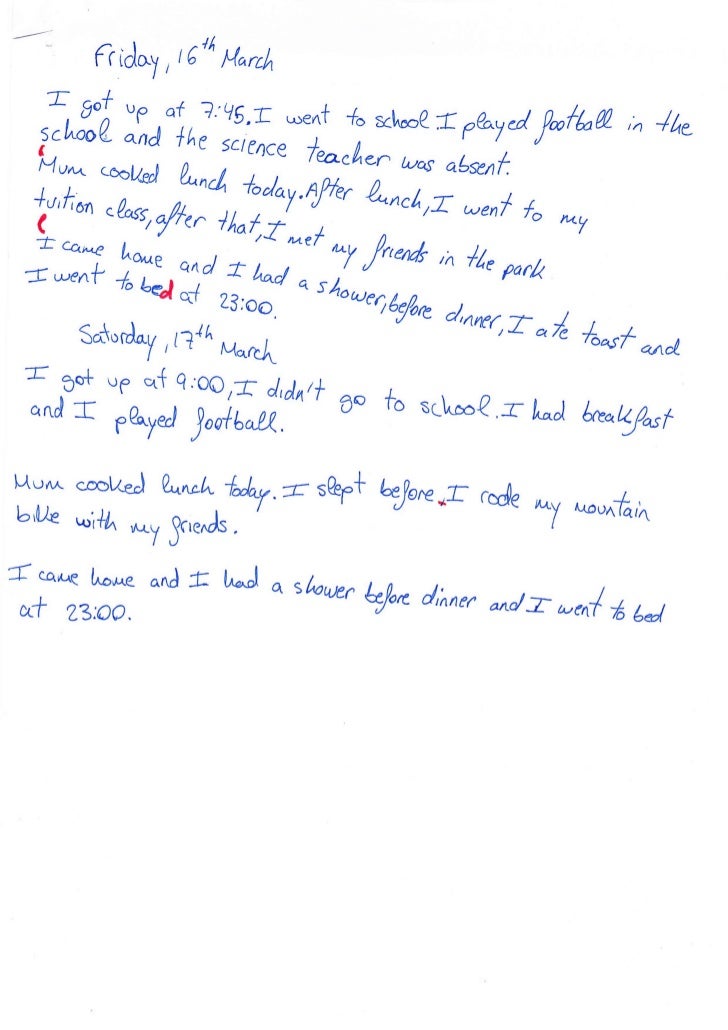 Friday, 16th March
I got up at 7:45. I went to school. I played football in the
school and the science teacher was absent.
Mum cooked lunch today. After lunch, I went to my
tuition class, after that, I met my friends in the park
I came home and I had a shower, before dinner, I ate toast and
I went to bed at 23:00.
Saturday, 17th March
I got up at 9:00, I didn't go to school. I had breakfast
and I played football.
Mum cooked lunch today. I slept before. I rode my mountain
bike with my friends.
I came home and I had a shower before dinner and I went to bed
at 23:00.